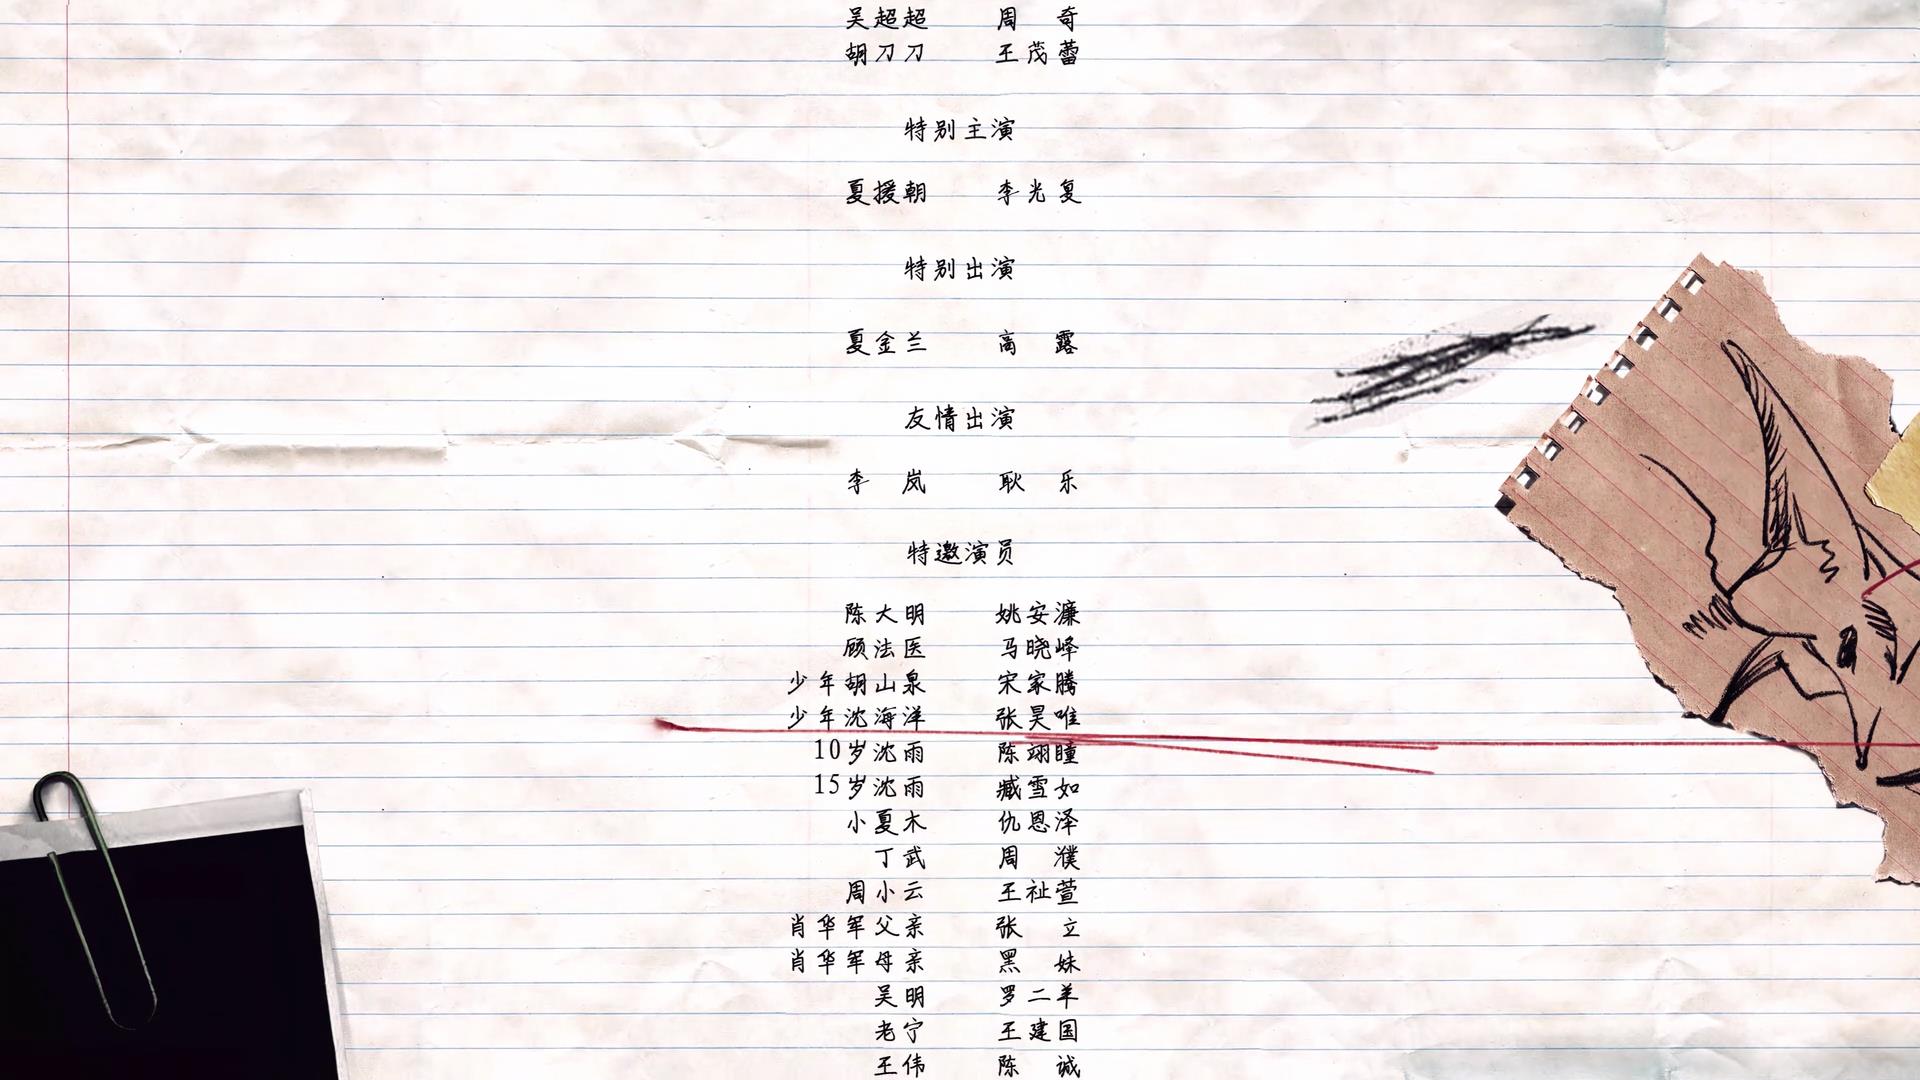 吴超超 周 奇
胡刀刀 王茂蕾
特别主演
夏援朝 李光复
特别出演
夏金兰 高 露
友情出演
李 岚 耿 乐
特邀演员
陈大明 姚安濂
顾法医 马晓峰
少年胡山泉 宋家腾
少年沈海洋 张昊唯
10岁沈雨 陈翊曈
15岁沈雨 臧雪如
小夏木 仇恩泽
丁武 周 濮
周小云 王祉萱
肖华军父亲 张 立
肖华军母亲 黑 妹
吴明 罗二羊
老宁 王建国
王伟 陈 诚